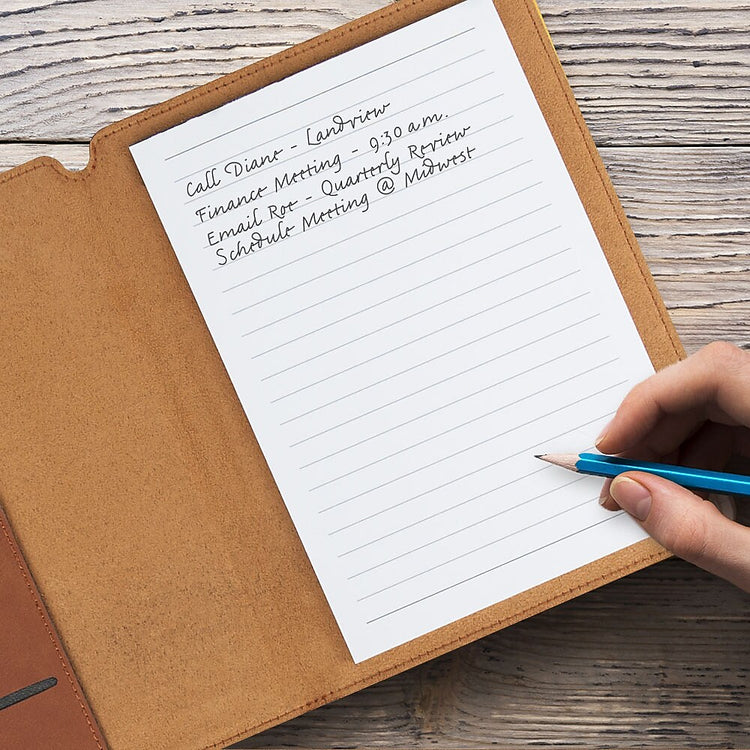 Call Diane - Landview
Finance Meeting - 9:30 a.m.
Email Roe - Quarterly Review
Schedule Meeting @ Midwest